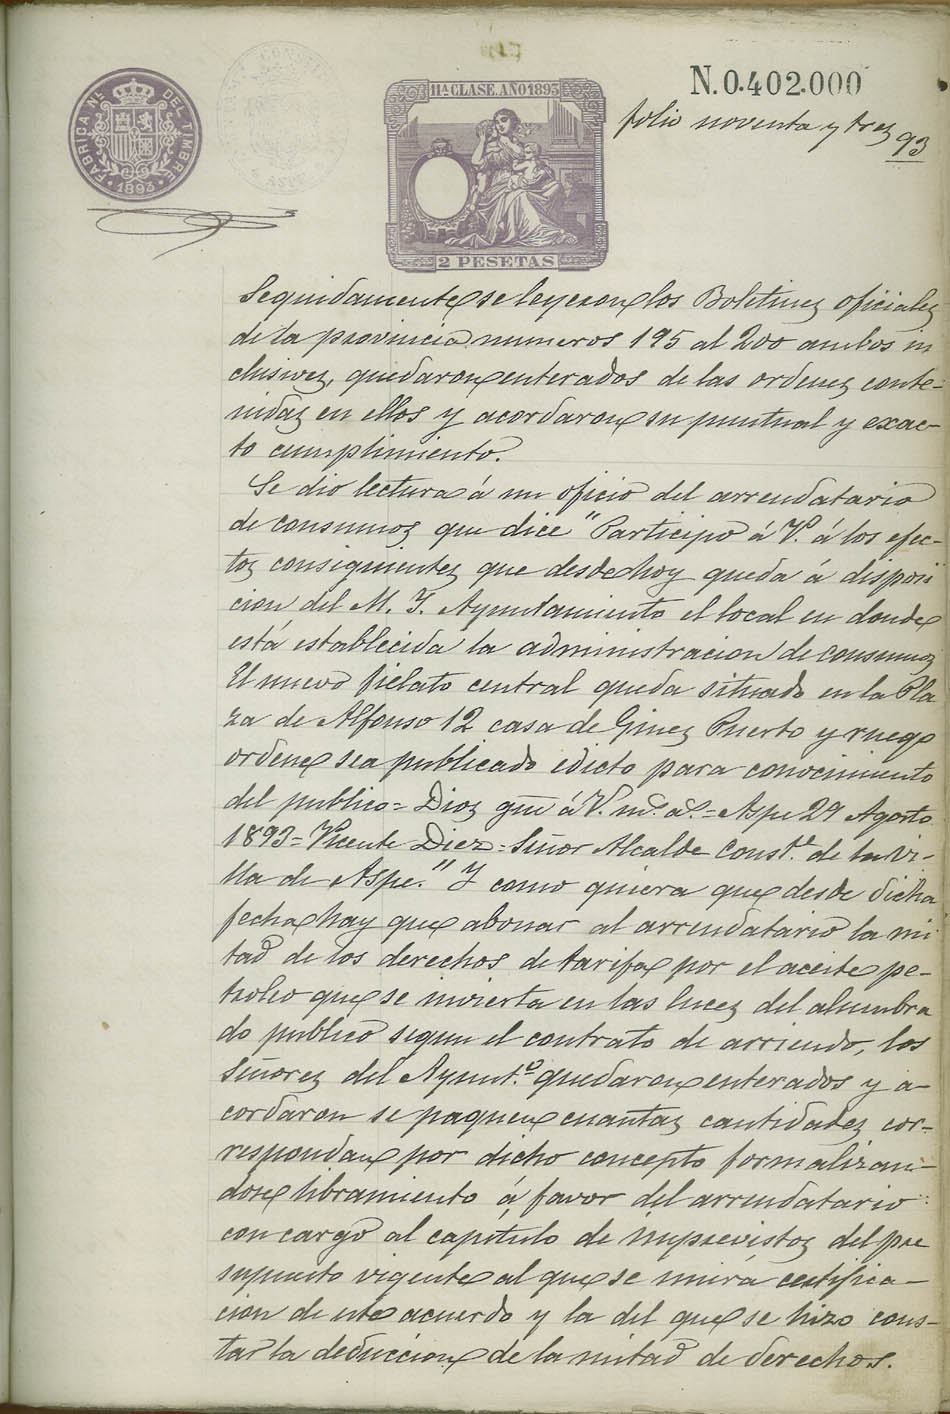 N.0.402.000
FABRICA N.L DEL TIMBRE
1893
11ª CLASE. AÑO 1893
2 PESETAS
folio noventa y tres
93
Seguidamente se leyeron los Boletines oficiales
de la provincia numeros 195 al 200 ambos in
clusives, quedaron enterados de las ordenes conte-
nidas en ellos y acordaron su puntual y exac-
to cumplimiento.
Se dio lectura á un oficio del arrendatario
de consumos que dice "Participo á V. á los efec-
tos consiguientes que desde hoy queda á disposi
cion del M. I. Ayuntamiento el local en donde
está establecida la administracion de consumos
El nuevo fielato central queda situado en la Pla
za de Alfonso 12 casa de Gines Puerto y ruego
ordene sea publicado edicto para conocimiento
del publico = Dios gue á V. ms. as. = Aspe 29 Agosto
1893 = Vicente Diez = Señor Alcalde Const.l de la Vi-
lla de Aspe." Y como quiera que desde dicha
fecha hay que abonar al arrendatario la mi
tad de los derechos de tarifa por el aceite pe-
troleo que se invierta en las luces del alumbra
do publico segun el contrato de arriendo, los
Señores del Ayunt.º quedaron enterados y a-
cordaron se paguen cuantas cantidades cor-
respondan por dicho concepto formalizan-
dose libramiento á favor del arrendatario
con cargo al capitulo de imprevistos del pre
supuesto vigente al que se unirá certifica-
cion de este acuerdo y la del que se hizo cons-
tar la deduccion de la mitad de derechos.